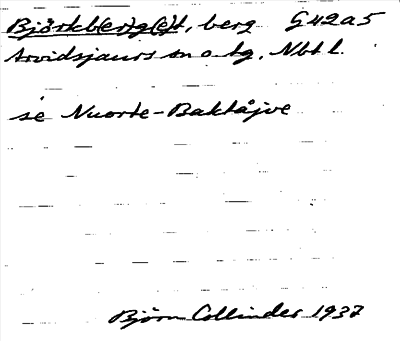 Björkb(er)g(e)t, berg G42a5
Arvidsjaurs sn o. tg, Nbt l.
se Nuorte-Baktåjve
Björn Collinder 1937